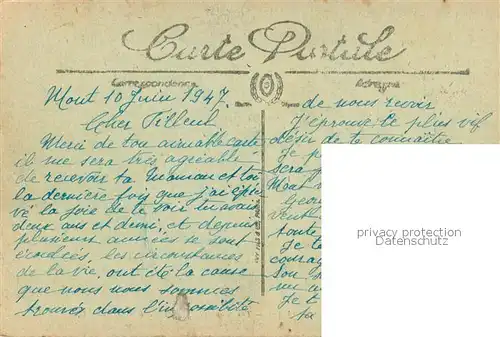 Carte Postale
Correspondance
Adresse
Mont 10 Juin 1947.
Cher Filleul
Merci de ton aimable carte
il me sera très agréable
de recevoir ta Maman et toi
la dernière fois que j'ai éprou
vé la joie de te voir tu avais
deux ans et demi, et depuis
plusieurs années se sont
écoulées, les circonstances
de la vie, ont été la cause
que nous nous sommes
trouvés dans l'impossibilité
de nous revoir
J'éprouve le plus vif
désir de te connaître
Je
sera
Geor
toute
Je te
courag
Son
un
Je t
ta
privacy protection
Datenschutz